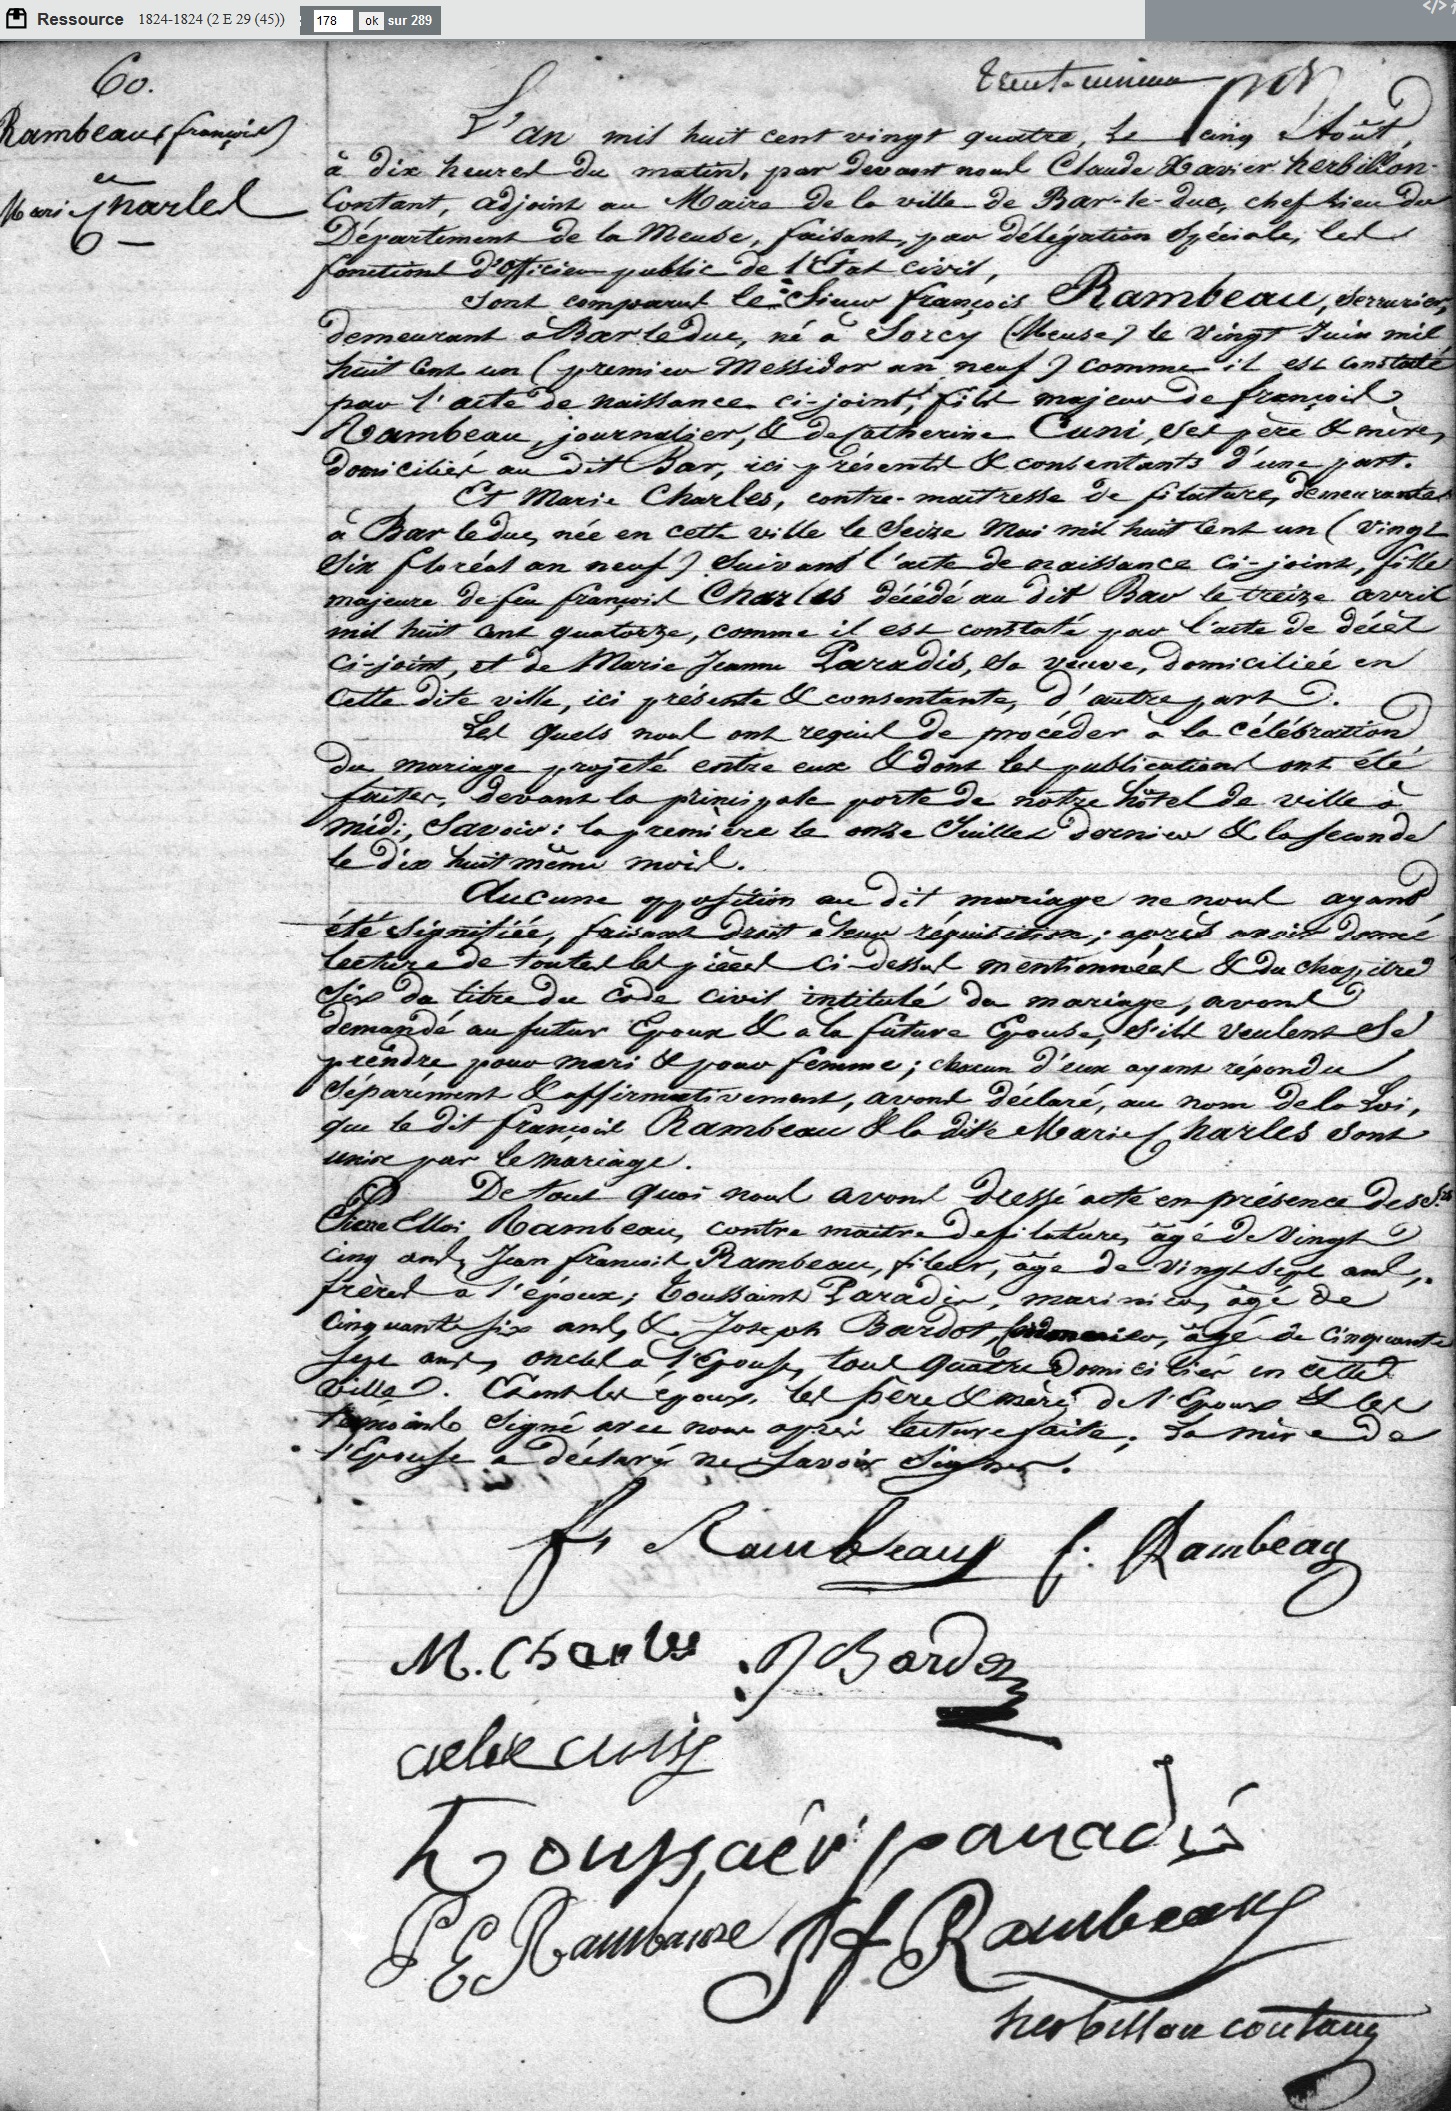 Ressource 1824-1824 (2 E 29 (45)) 178 ok sur 289
60.
Rambeau françois
et
Marie Charles
L'an mil huit cent vingt quatre, le cinq Août,
à dix heures du matin, par devant nous Claude Xavier herbillon-
Contant, adjoint au Maire de la ville de Bar-le-duc, chef lieu du
Département de la Meuse, faisant, par délégation spéciale, les
fonctions d'officier public de l'Etat civil,
Sont comparus le Sieur françois Rambeau, serrurier,
demeurant à Bar le duc, né à Sorcy (Meuse) le vingt Juin mil
huit cent un (premier Messidor an neuf) comme il est constaté
par l'acte de naissance ci-joint, fils majeur de françois
Rambeau, journalier, & de Catherine Cuni, ses père & mère,
domiciliés au dit Bar, ici présents & consentants d'une part.
Et Marie Charles, contre-maitresse de filature, demeurante
à Bar le duc, née en cette ville le Seize Mai mil huit cent un (vingt
six floréal an neuf) suivant l'acte de naissance ci-joint, fille
majeure de feu françois Charles décédé au dit Bar le treize avril
mil huit cent quatorze, comme il est constaté par l'acte de décès
ci-joint, et de Marie Jeanne Paradis, sa veuve, domiciliée en
cette dite ville, ici présente & consentante, d'autre part.
Les quels nous ont requis de procéder à la célébration
du mariage projeté entre eux & dont les publications ont été
faites, devant la principale porte de notre hôtel de ville à
midi, Savoir: la première le onze Juillet dernier & la seconde
le dix huit même mois.
Aucune opposition au dit mariage ne nous ayant
été signifiée, faisant droit à leur réquisition; après avoir donné
lecture de toutes les pièces ci-dessus mentionnées & du chapitre
Six du titre du code civil intitulé du mariage, avons
demandé au futur Epoux & à la future Epouse, s'ils veulent se
prendre pour mari & pour femme; chacun d'eux ayant répondu
séparément & affirmativement, avons déclaré, au nom de la Loi,
que le dit françois Rambeau & la dite Marie Charles sont
unis par le mariage.
De tout quoi nous avons dressé acte en présence des Srs
Pierre Elloi Rambeau, contre maitre de filature, âgé de vingt
cinq ans, Jean francois Rambeau, fileur, âgé de vingt sept ans,
frères à l'époux; Toussaint Paradis, marinier, âgé de
cinquante six ans, & Joseph Bardot, âgé de cinquante
sept ans, oncles à l'Epouse, tous quatre domiciliés en cette
ville. Et ont les époux, les père & mère de l'Epoux & les
témoins signé avec nous après lecture faite. La mère de
l'Epouse a déclaré ne savoir signer.
fs Rambeau f. Rambeau
M. Charles J Bardot
Toussaint paradis
P E Rambeau J f Rambeau
herbillon contant